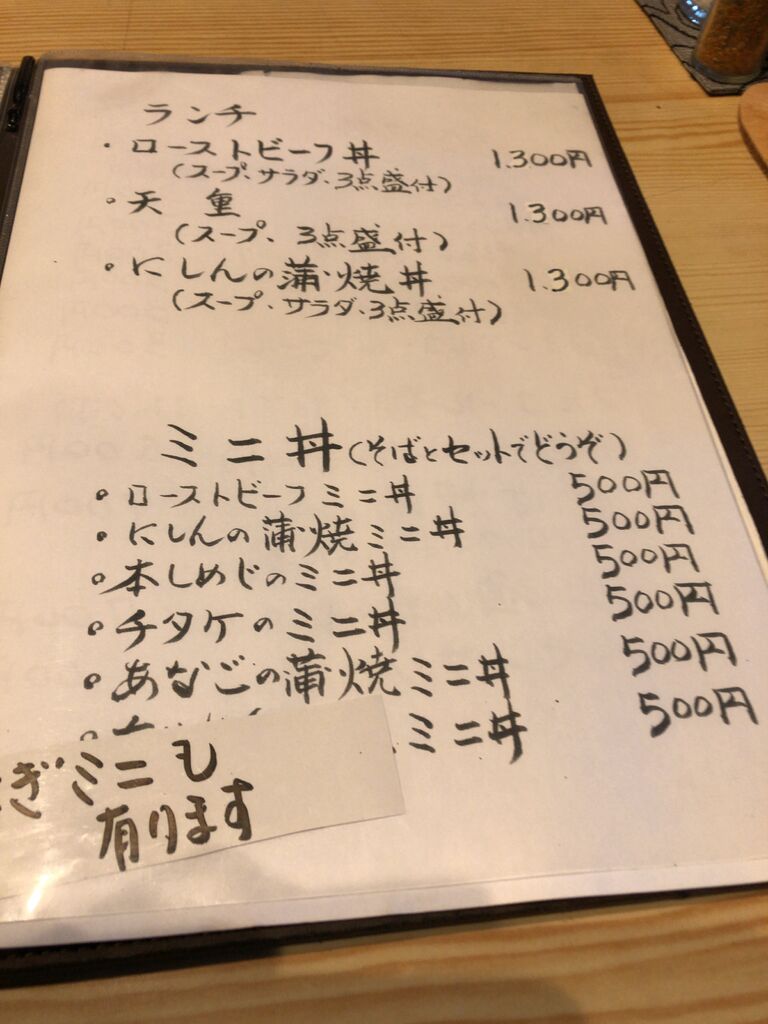 ランチ
・ローストビーフ丼 1.300円
(スープ、サラダ、3点盛付)
・天重 1.300円
(スープ、3点盛付)
・にしんの蒲焼丼 1.300円
(スープ、サラダ、3点盛付)
ミニ丼(そばとセットでどうぞ)
・ローストビーフミニ丼 500円
・にしんの蒲焼ミニ丼 500円
・本しめじのミニ丼 500円
・チタケのミニ丼 500円
・あなごの蒲焼ミニ丼 500円
ミニ丼 500円
ぎミニも
有ります